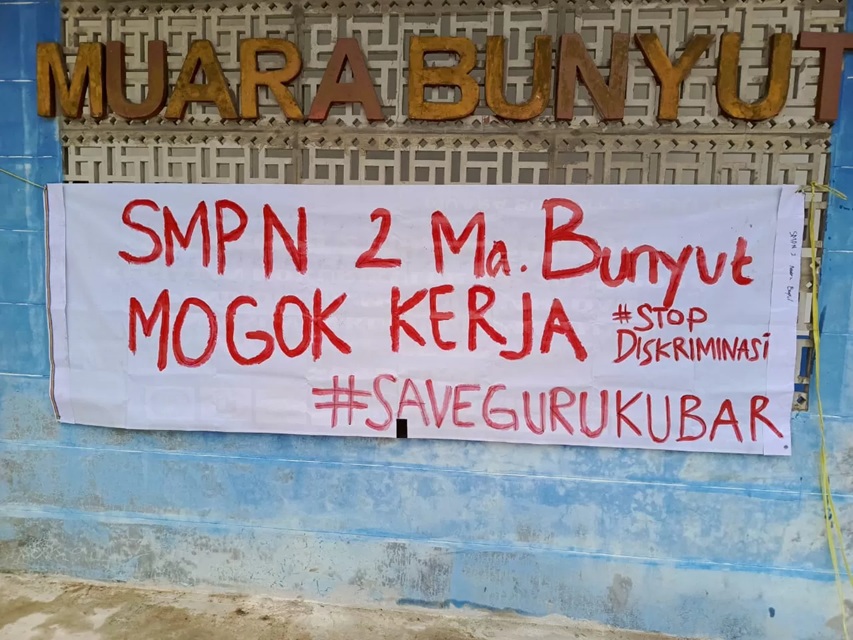 MUARA BUNYUT
SMPN 2 Ma. Bunyut
MOGOK KERJA
#STOP
DISKRIMINASI
#SAVEGURUKUBAR